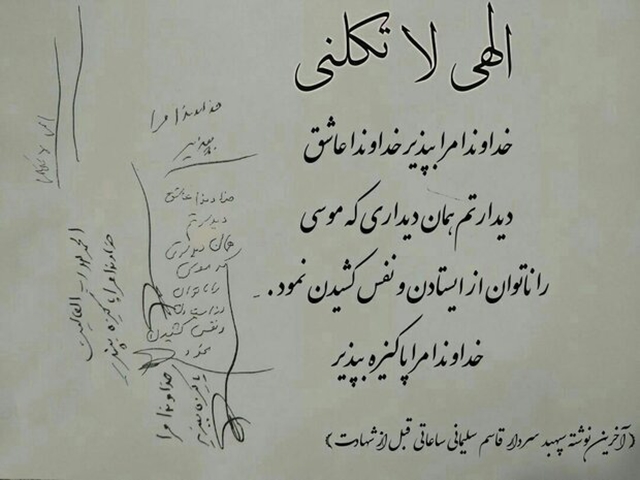 الهی لا تکلنی
خداوندا مرا بپذیر خداوندا عاشق
دیدارتم همان دیداری که موسی
را ناتوان از ایستادن و نفس کشیدن نمود.
خداوندا مرا پاکیزه بپذیر
(آخرین نوشته سپهبد سردار قاسم سلیمانی ساعاتی قبل از شهادت)
الهی لا تکلنی
خداوندا مرا
بپذیر
خداوندا عاشق
دیدارتم
همان دیداری
که موسی
را ناتوان
از ایستادن
و نفس کشیدن
نمود
خداوندا مرا
پاکیزه بپذیر
الحمد لله رب العالمین
خداوندا مرا پاکیزه بپذیر